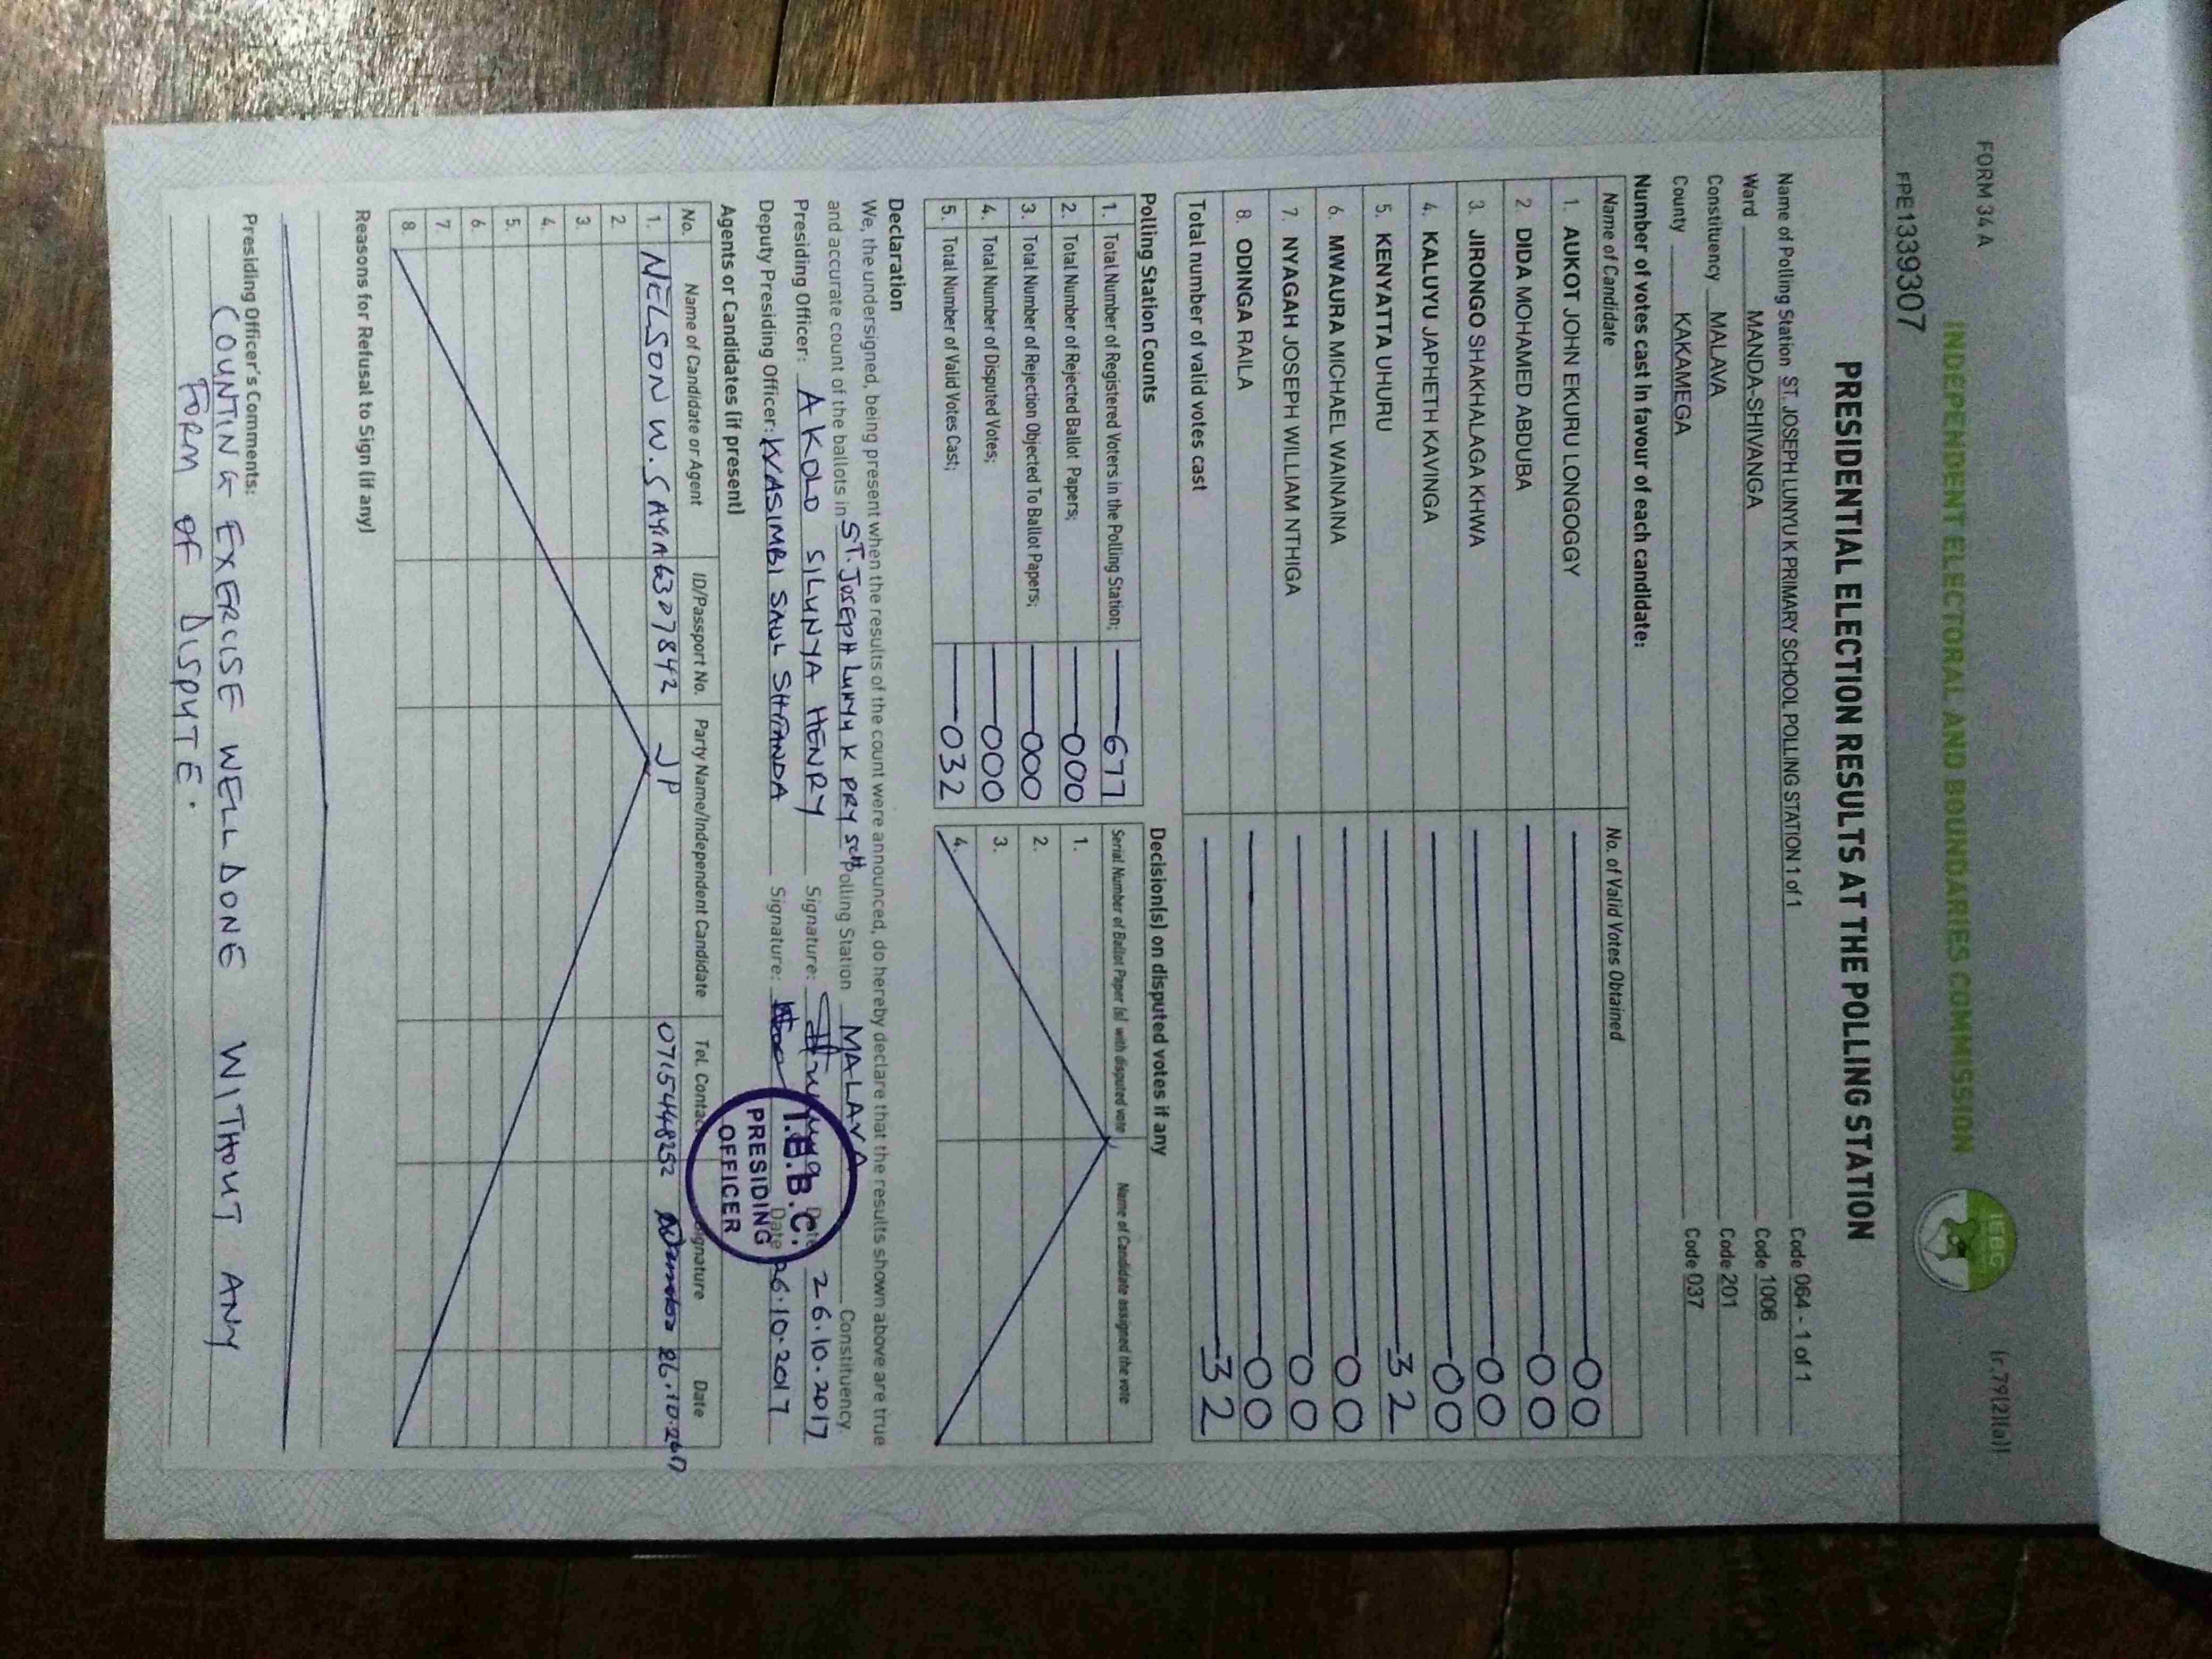 FORM 34 A
(r.79(2)(a))
INDEPENDENT ELECTORAL AND BOUNDARIES COMMISSION
IEBC
FPE1339307
PRESIDENTIAL ELECTION RESULTS AT THE POLLING STATION
Name of Polling Station ST. JOSEPH LUNYU K PRIMARY SCHOOL POLLING STATION 1 of 1 Code 064 - 1 of 1
Ward MANDA-SHIVANGA Code 1006
Constituency MALAVA Code 201
County KAKAMEGA Code 037
Number of votes cast in favour of each candidate:
Name of Candidate No. of Valid Votes Obtained
1. AUKOT JOHN EKURU LONGOGGY 00
2. DIDA MOHAMED ABDUBA 00
3. JIRONGO SHAKHALAGA KHWA 00
4. KALUYU JAPHETH KAVINGA 00
5. KENYATTA UHURU 32
6. MWAURA MICHAEL WAINAINA 00
7. NYAGAH JOSEPH WILLIAM NTHIGA 00
8. ODINGA RAILA 00
Total number of valid votes cast 32
Polling Station Counts
1. Total Number of Registered Voters in the Polling Station; 677
2. Total Number of Rejected Ballot Papers; 000
3. Total Number of Rejection Objected To Ballot Papers; 000
4. Total Number of Disputed Votes; 000
5. Total Number of Valid Votes Cast; 032
Decision(s) on disputed votes if any
Serial Number of Ballot Paper (s) with disputed vote Name of Candidate assigned the vote
1.
2.
3.
4.
Declaration
We, the undersigned, being present when the results of the count were announced, do hereby declare that the results shown above are true
and accurate count of the ballots in ST. JOSEPH LUNYU K PRY SCH Polling Station MALAVA Constituency
Presiding Officer: AKOLO SILUNYA HENRY Signature: Date 26.10.2017
Deputy Presiding Officer: KWASIMBI SAUL Signature: Date 26.10.2017
I.E.B.C.
PRESIDING
OFFICER
Agents or Candidates (if present)
No. Name of Candidate or Agent ID/Passport No. Party Name/Independent Candidate Tel. Contact Signature Date
1. NELSON W. 6307842 JP 0715448252 26.10.2017
2.
3.
4.
5.
6.
7.
8.
Reasons for Refusal to Sign (if any)
Presiding Officer's Comments:
COUNTING EXERCISE WELL DONE WITHOUT ANY
FORM OF DISPUTE.